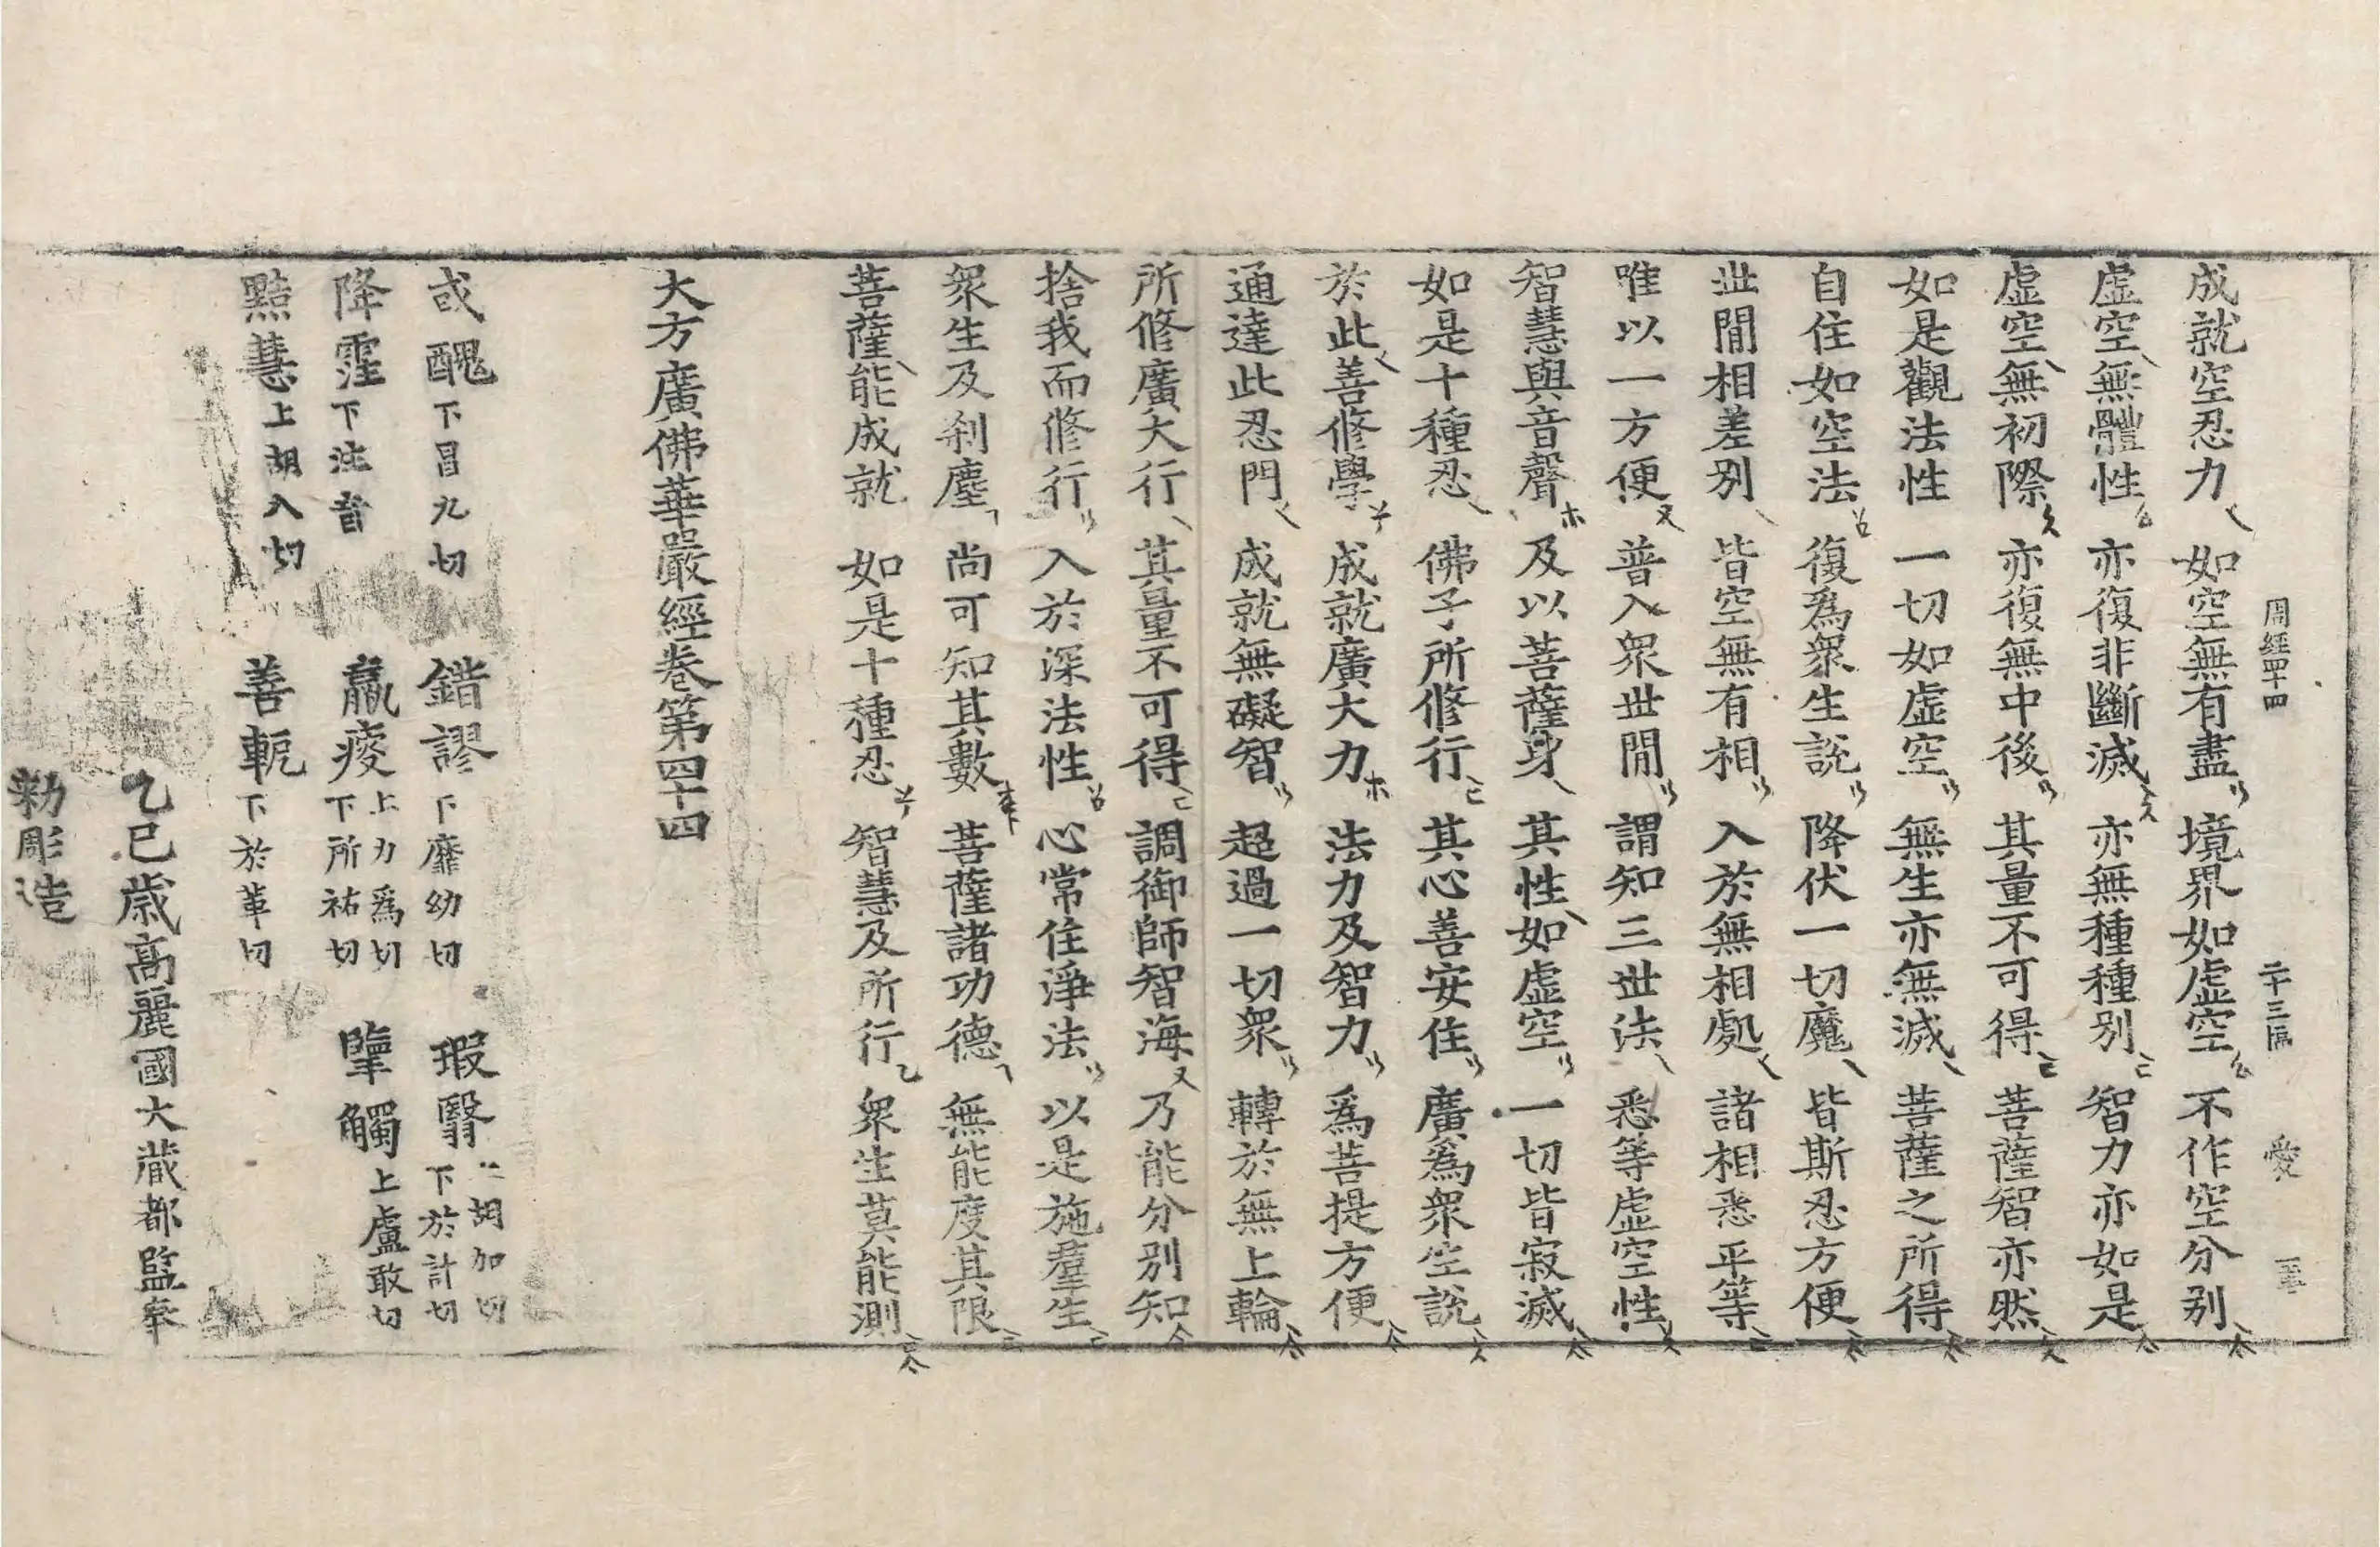 成就空忍力 如空無有盡 境界如虛空 不作空分別
虛空無體性 亦復非斷滅 亦無種種別 智力亦如是
虛空無初際 亦復無中後 其量不可得 菩薩智亦然
如是觀法性 一切如虛空 無生亦無滅 菩薩之所得
自住如空法 復爲衆生說 降伏一切魔 皆斯忍方便
世閒相差別 皆空無有相 入於無相處 諸相悉平等
唯以一方便 普入衆世閒 謂知三世法 悉等虛空性
智慧與音聲 及以菩薩身 其性如虛空 一切皆寂滅
如是十種忍 佛子所修行 其心善安住 廣爲衆生說
於此善修學 成就廣大力 法力及智力 爲菩提方便
通達此忍門 成就無礙智 超過一切衆 轉於無上輪
所修廣大行 其量不可得 調御師智海 乃能分別知
捨我而修行 入於深法性 心常住淨法 以是施羣生
衆生及刹塵 尚可知其數 菩薩諸功德 無能度其限
菩薩能成就 如是十種忍 智慧及所行 衆生莫能測
大方廣佛華嚴經卷第四十四
或醜 下昌九切 錯謬 下靡幼切 瑕翳 上胡加切 下於計切
降霔 下注音 羸瘦 上力爲切 下所祐切 擥觸 上盧敢切
黠慧 上胡八切 善軛 下於革切
乙巳歲高麗國大藏都監奉
勅彫造
周經四十四 二十三張 愛